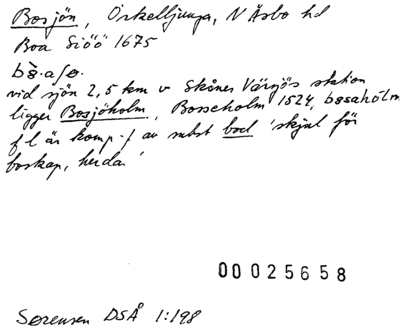 Bosjön, Örkelljunga, N Åsbo hd
Boa Siöö 1675
vid sjön 2,5 km v Skånes Värsjös station
ligger Bosjöholm, Bosseholm 1524, bosahólm
f l är komp.f av subst bod 'skjul för
boskap, herdar'
00025658
Sørensen DSÅ 1:198